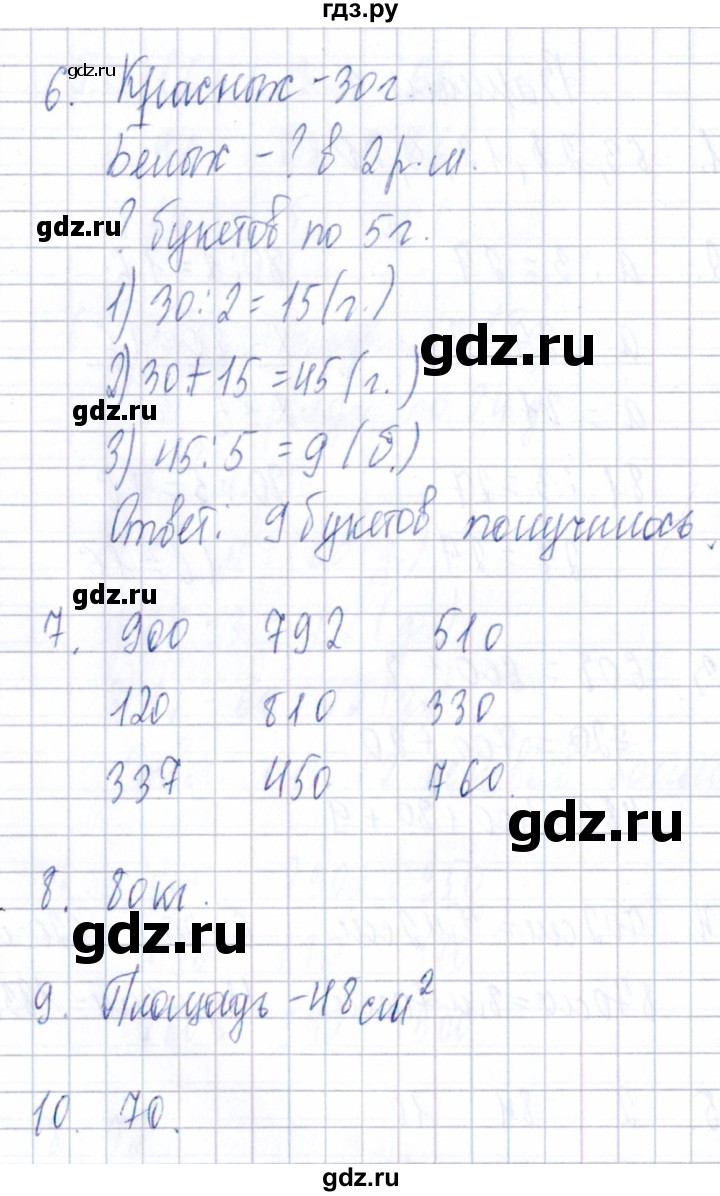 гдз.ру
gdz.ru
6. Красных - 30 г.
Белых - ? в 2 р. м.
gdz.ru
? букетов по 5 г.
1) 30 : 2 = 15 (г.)
gdz.ru
2) 30 + 15 = 45 (г.)
gdz.ru
3) 45 : 5 = 9 (б.)
Ответ: 9 букетов получилось.
gdz.ru
7. 900 792 510
120 810 330
337 450 760.
gdz.ru
8. 80 кг.
gdz.ru
9. Площадь - 48 см²
10. 70.
gdz.ru